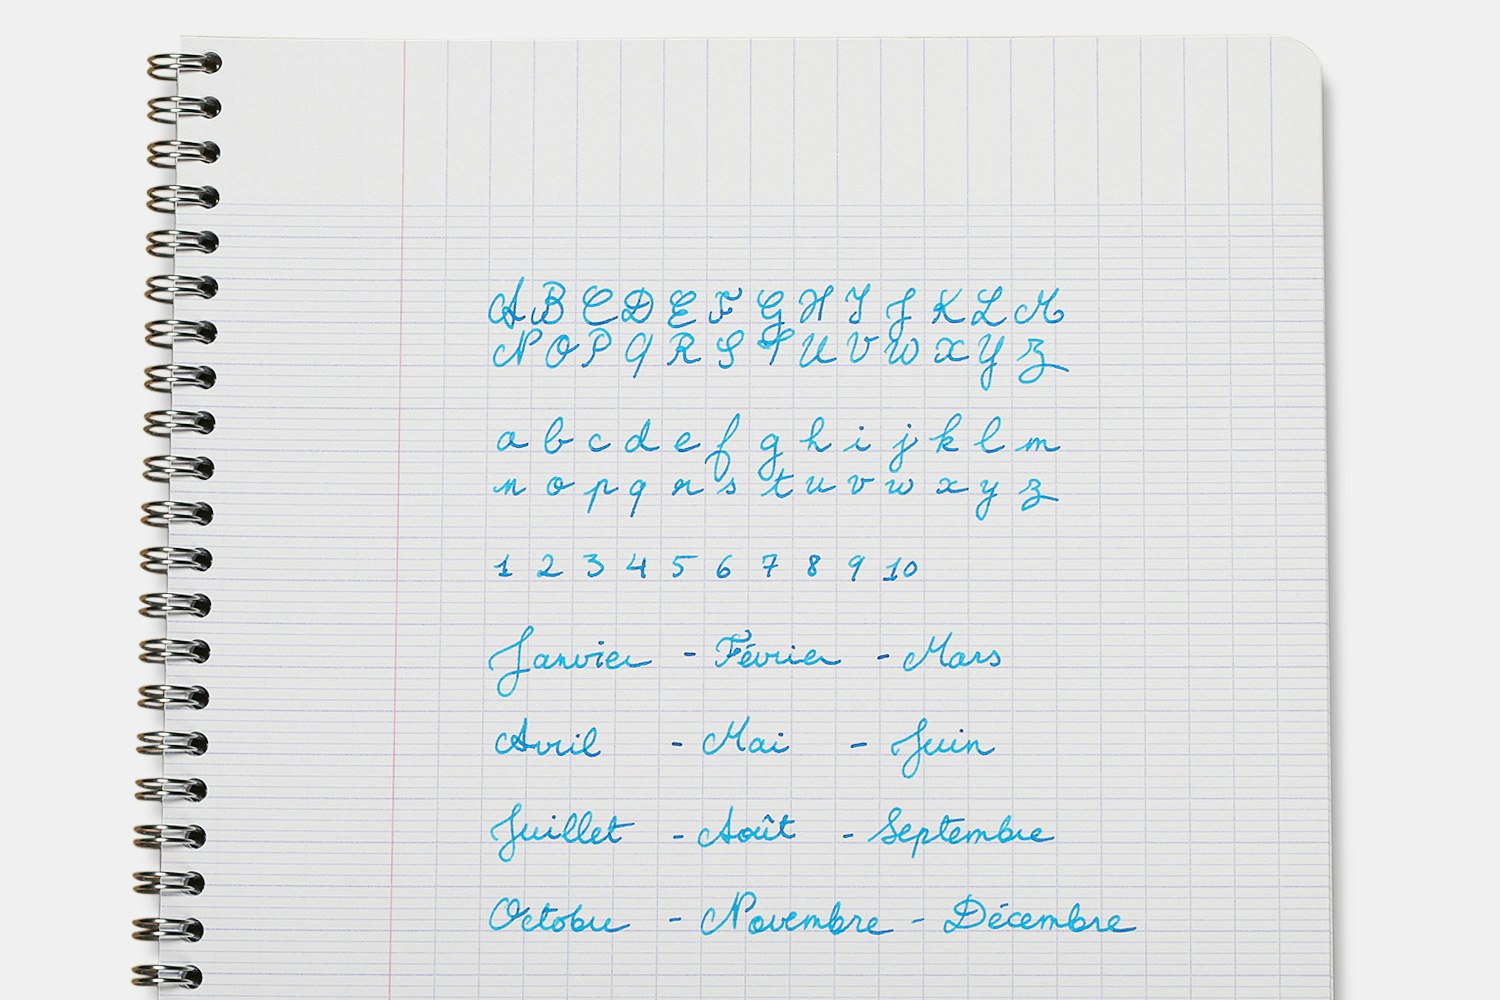 A B C D E F G H I J K L M
N O P Q R S T U V W X Y Z
a b c d e f g h i j k l m
n o p q r s t u v w x y z
1 2 3 4 5 6 7 8 9 10
Janvier - Février - Mars
Avril - Mai - Juin
Juillet - Août - Septembre
Octobre - Novembre - Décembre